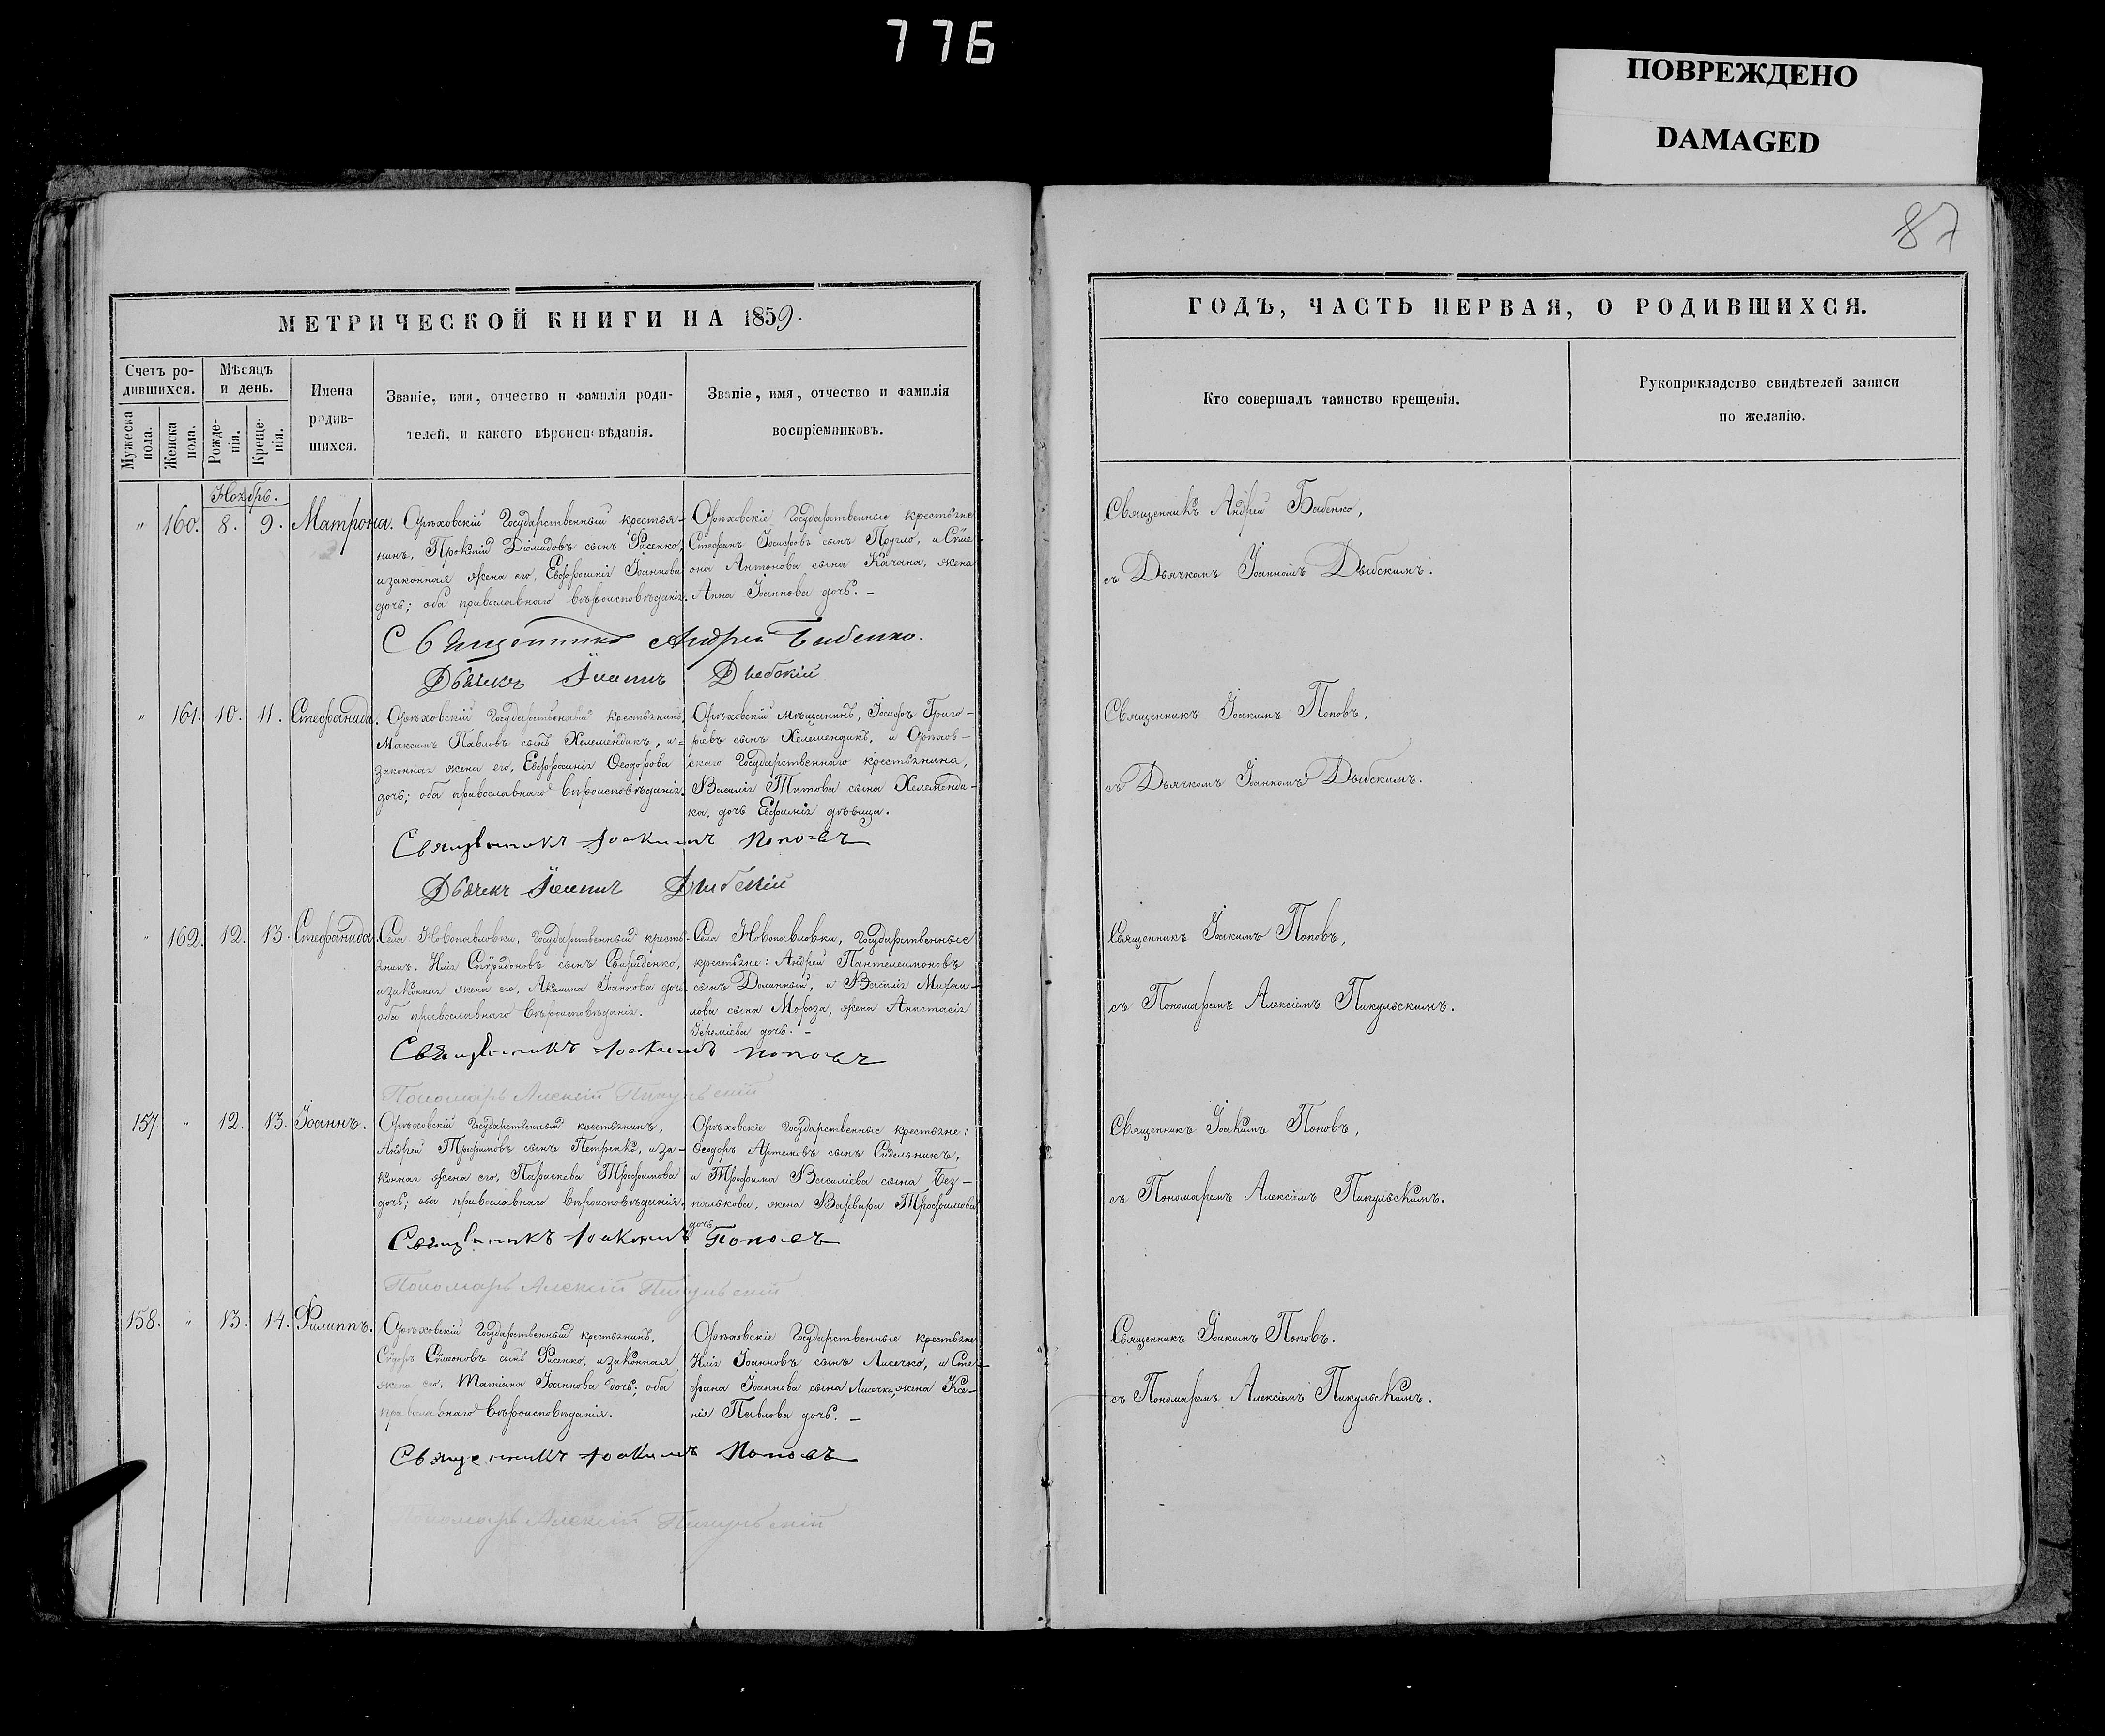 776
ПОВРЕЖДЕНО
DAMAGED
87
МЕТРИЧЕСКОЙ КНИГИ НА 1859.
Счетъ ро-
дившихся.
Мужеска
пола.
Женска
пола.
Мѣсяцъ
и день.
Рожде-
нія.
Креще-
нія.
Имена
родив-
шихся.
Званіе, имя, отчество и фамилія роди-
телей, и какого вѣроисповѣданія.
Званіе, имя, отчество и фамилія
воспріемниковъ.
Ноябрь.
" 160. 8. 9. Матрона.
Орѣховскій Государственный крестья-
нинъ, Прокопій Діомидовъ сынъ Фисенко,
и законная жена его, Евфросинія Іоаннова
дочь; оба православнаго вѣроисповѣданія.
Орѣховскіе Государственные крестьяне
Стефанъ Іосифовъ сынъ Пугло, и Сѵме
она Антонова сына Качана, жена
Анна Іоаннова дочь. –
Священникъ Андрей Бабенко.
Дьячекъ Іоаннъ Дыбскій
" 161. 10. 11. Стефанида.
Орѣховскій Государственный крестьянинъ,
Максимъ Павловъ сынъ Хелемендикъ, и
законная жена его, Евфросинія Ѳеодорова
дочь; оба православнаго вѣроисповѣданія.
Орѣховскій мѣщанинъ, Іосифъ Григо-
рьевъ сынъ Хелемендикъ, и Орѣхов-
скаго Государственнаго крестьянина,
Василія Титова сына Хелеменди-
ка, дочь Евфимія дѣвица.
Священникъ Іоакимъ Поповъ
Дьячекъ Іоаннъ Дыбскій
" 162. 12. 13. Стефанида.
Села Новопавловки, Государственный кресть-
янинъ. Илія Спѵридоновъ сынъ Свириденко,
и законная жена его, Акилина Іоаннова дочь.
оба православнаго вѣроисповѣданія.
Села Новопавловки, Государственные
крестьяне: Андрей Пантелеимоновъ
сынъ Долинный, и Василія Михаи-
лова сына Мороза, жена Анастасія
Іереміева дочь. –
Священникъ Іоакимъ Поповъ
Пономарь Алексій Пикульскій
157. " 12. 13. Іоаннъ.
Орѣховскій Государственный крестьянинъ,
Андрей Трофимовъ сынъ Петренко, и за-
конная жена его, Параскева Трофимова
дочь; оба православнаго вѣроисповѣданія.
Орѣховскіе Государственные крестьяне:
Ѳеодоръ Артемовъ сынъ Сидельникъ,
и Трофима Василіева сына Без-
палькова, жена Варвара Трофимова
дочь
Священникъ Іоакимъ Поповъ
Пономарь Алексій Пикульскій
158. " 13. 14. Филиппъ.
Орѣховскій Государственный крестьянинъ,
Сѵдоръ Сѵмоновъ сынъ Фисенко, и законная
жена его, Татіана Іоаннова дочь; оба
православнаго вѣроисповѣданія.
Орѣховскіе Государственные крестьяне
Илія Іоанновъ сынъ Лисечко, и Сте-
фана Іоаннова сына Лисечка, жена Ксе-
нія Павлова дочь. –
Священникъ Іоакимъ Поповъ
Пономарь Алексій Пикульскій
ГОДЪ, ЧАСТЬ ПЕРВАЯ, О РОДИВШИХСЯ.
Кто совершалъ таинство крещенія.
Рукоприкладство свидѣтелей записи
по желанію.
Священникъ Андрей Бабенко,
съ Дьячкомъ Іоанномъ Дыбскимъ.
Священникъ Іоакимъ Поповъ,
съ Дьячкомъ Іоанномъ Дыбскимъ.
Священникъ Іоакимъ Поповъ,
съ Пономаремъ Алексіемъ Пикульскимъ.
Священникъ Іоакимъ Поповъ,
съ Пономаремъ Алексіемъ Пикульскимъ.
Священникъ Іоакимъ Поповъ.
съ Пономаремъ Алексіемъ Пикульскимъ.